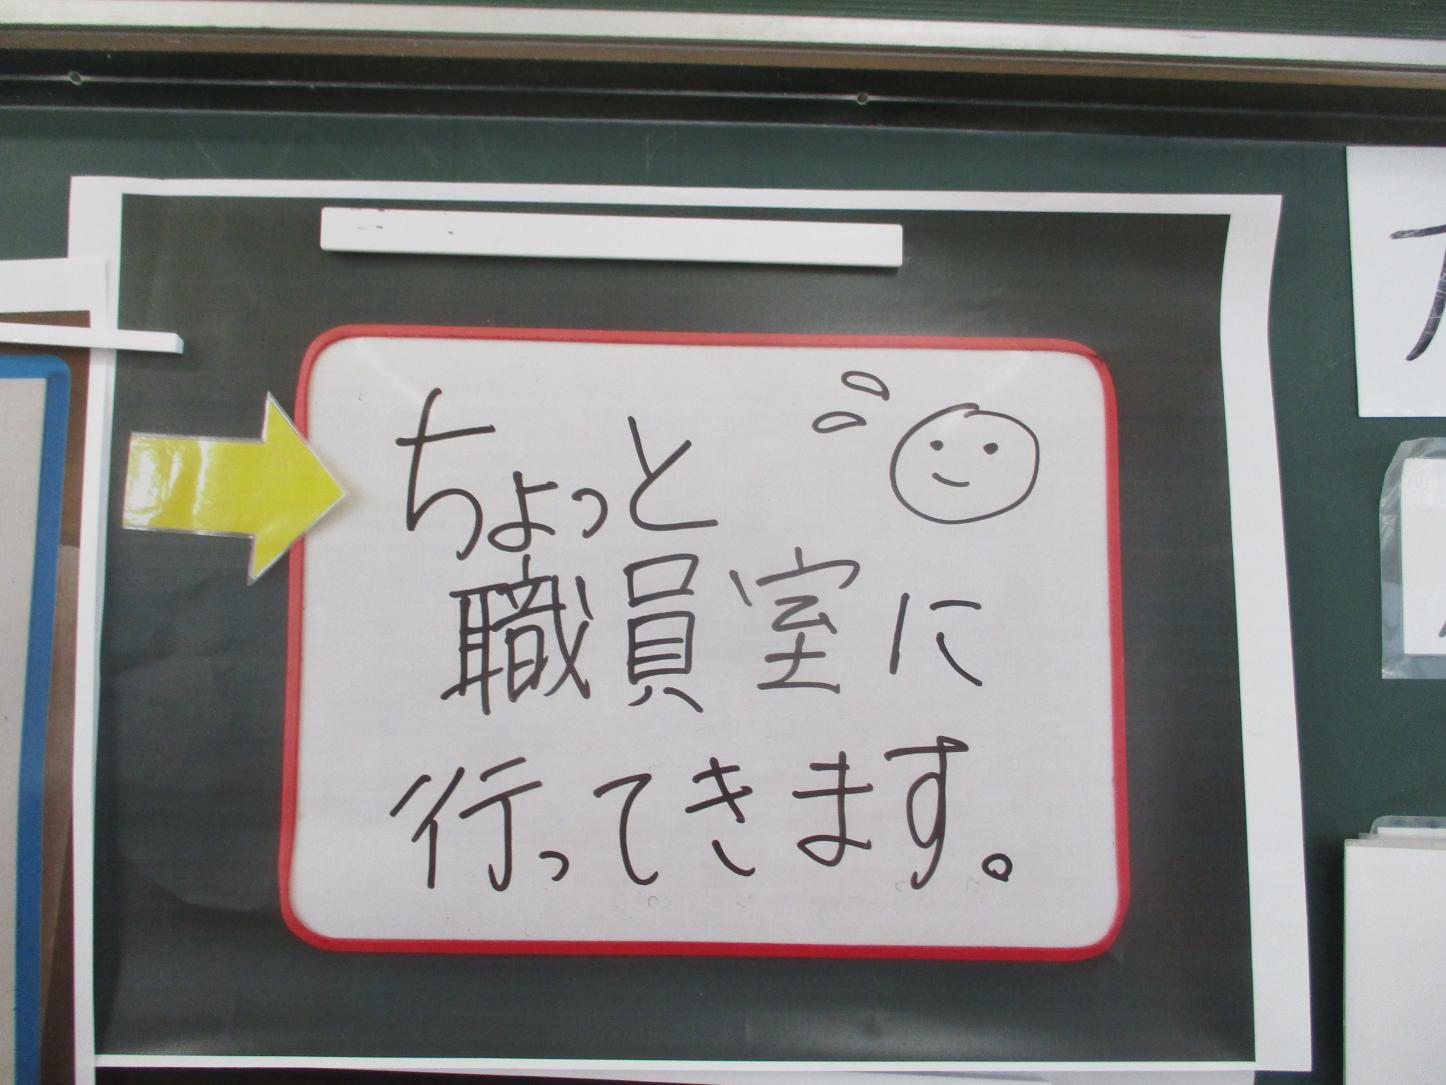 ちょっと
職員室に
行ってきます。